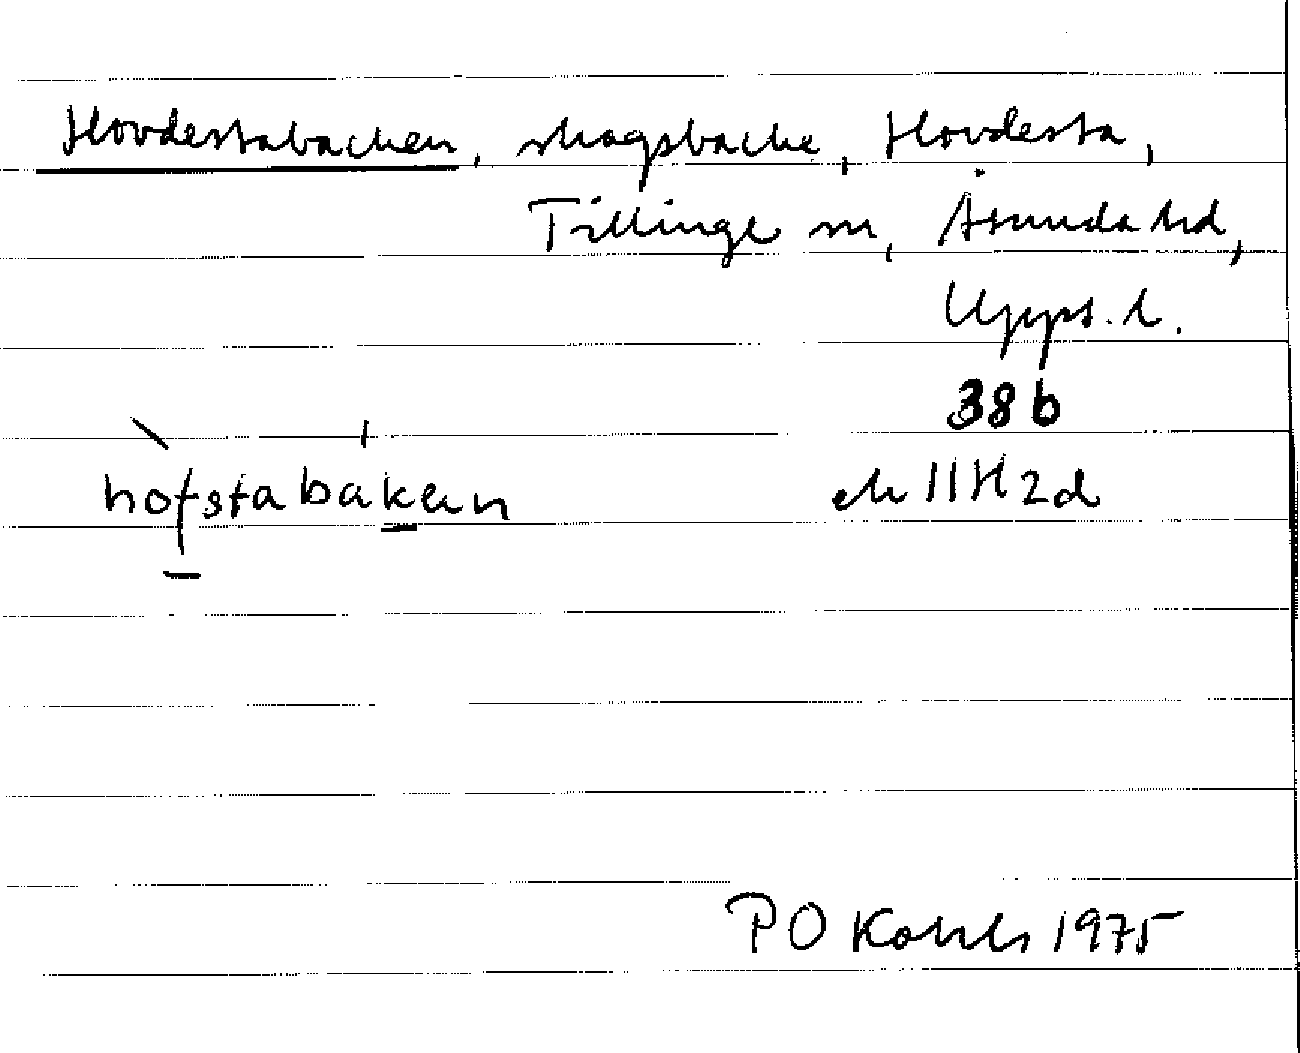 Hovdestabacken, skogsbacke, Hovdesta,
Tillinge sn, Åsunda hd,
Upps. l.
38b
hofstabakan
ek 11H2d
PO 1975